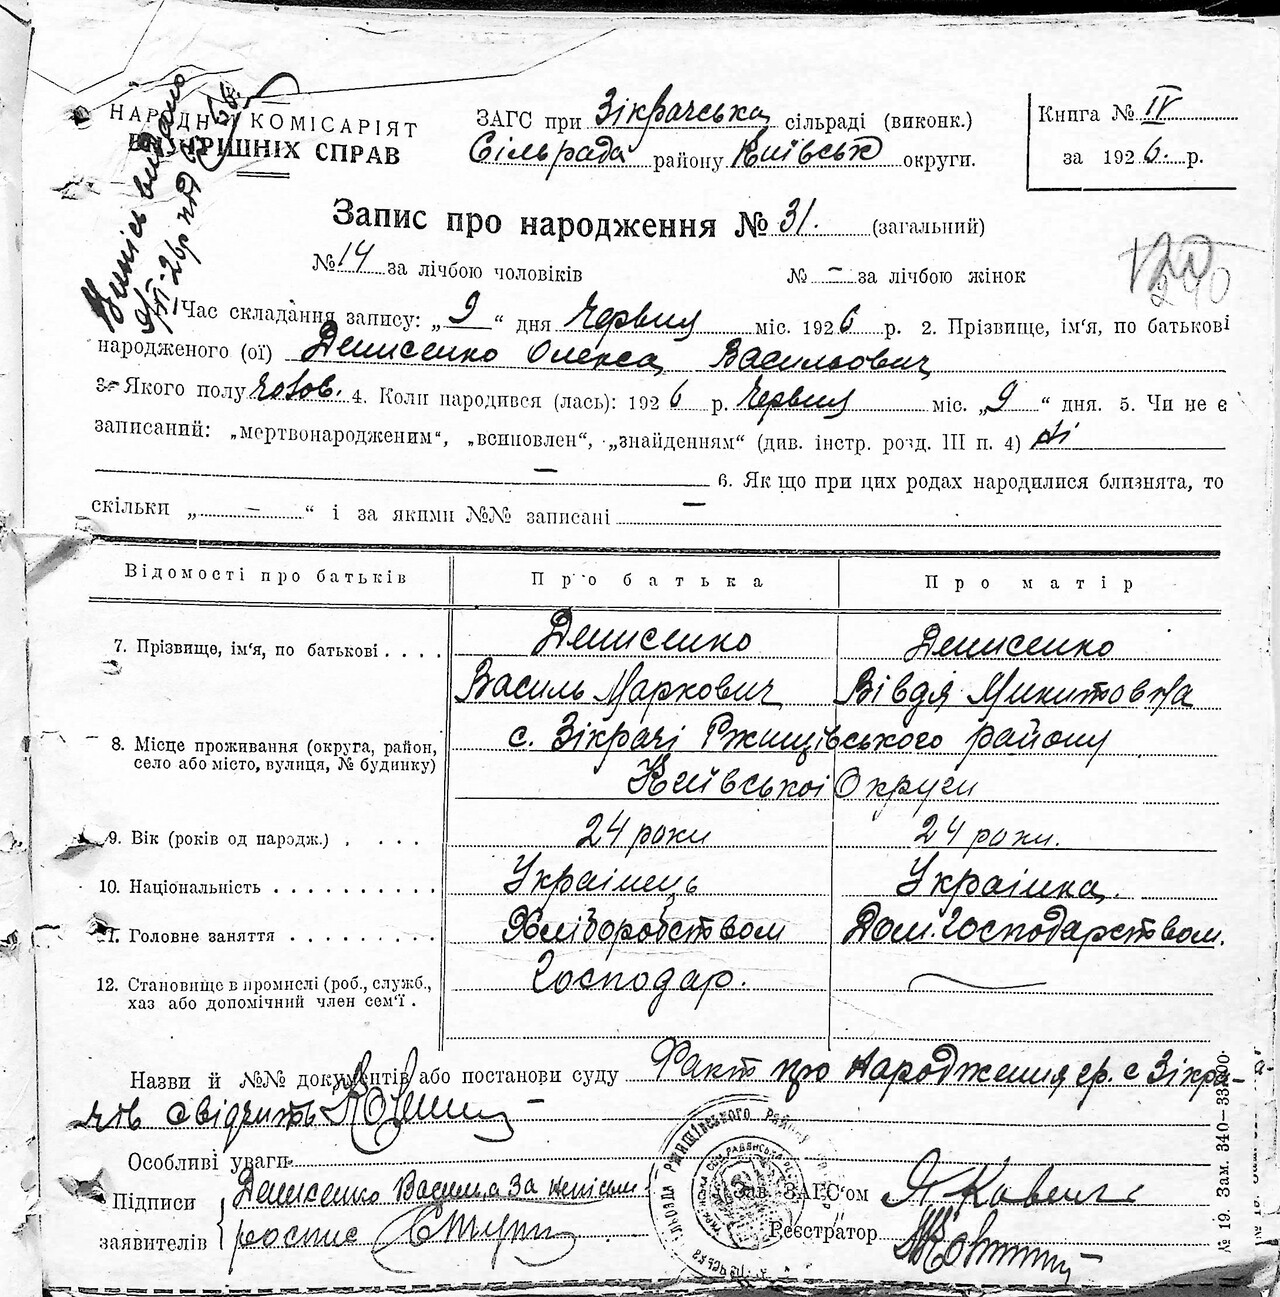 НАРОДНІЙ КОМІСАРІЯТ
ВНУТРІШНІХ СПРАВ
ЗАГС при Зікрачська сільраді (виконк.)
Сільрада району Київськ округи.
Книга № IV
за 1926. р.
Запис про народження № 31. (загальний)
№ 14 за лічбою чоловіків № – за лічбою жінок
1. Час складання запису: „ 9 “ дня Червня міс. 1926 р. 2. Прізвище, ім'я, по батькові
народженого (ої) Денисенко Олекса Васильович
3. Якого полу чолов. 4. Коли народився (лась): 1926 р. Червня міс. „ 9 “ дня. 5. Чи не є
записаний: „мертвонародженим“, „всиновлен“, „знайденням“ (див. інстр. розд. III п. 4) Ні
– 6. Як що при цих родах народилися близнята, то
скільки „ – “ і за якими №№ записані –
Відомості про батьків Про батька Про матір
7. Прізвище, ім'я, по батькові . . . . Денисенко Денисенко
Василь Маркович Вівдя Микитовна
8. Місце проживання (округа, район, село або місто, вулиця, № будинку) с. Зікрачі Ржищівського району
Київської Округи
9. Вік (років од народж.) . . . . 24 роки 24 роки.
10. Національність . . . . . . . . . . Українець Українка.
11. Головне заняття . . . . . . . . . Хліборобством Дом. господарством.
12. Становище в промислі (роб., служб., хаз або допомічний член сем'ї . Господар.
Назви й №№ документів або постанови суду Факт про народження гр. с Зікра-
чів свідчить
Особливі уваги
Підписи
заявителів
Денисенко Василь а за неписьм
роспис
Зав. ЗАГС'ом
Реєстратор
РЖИЩІВСЬКОГО РАЙОНУ
№ 19. Зам. 340—33400